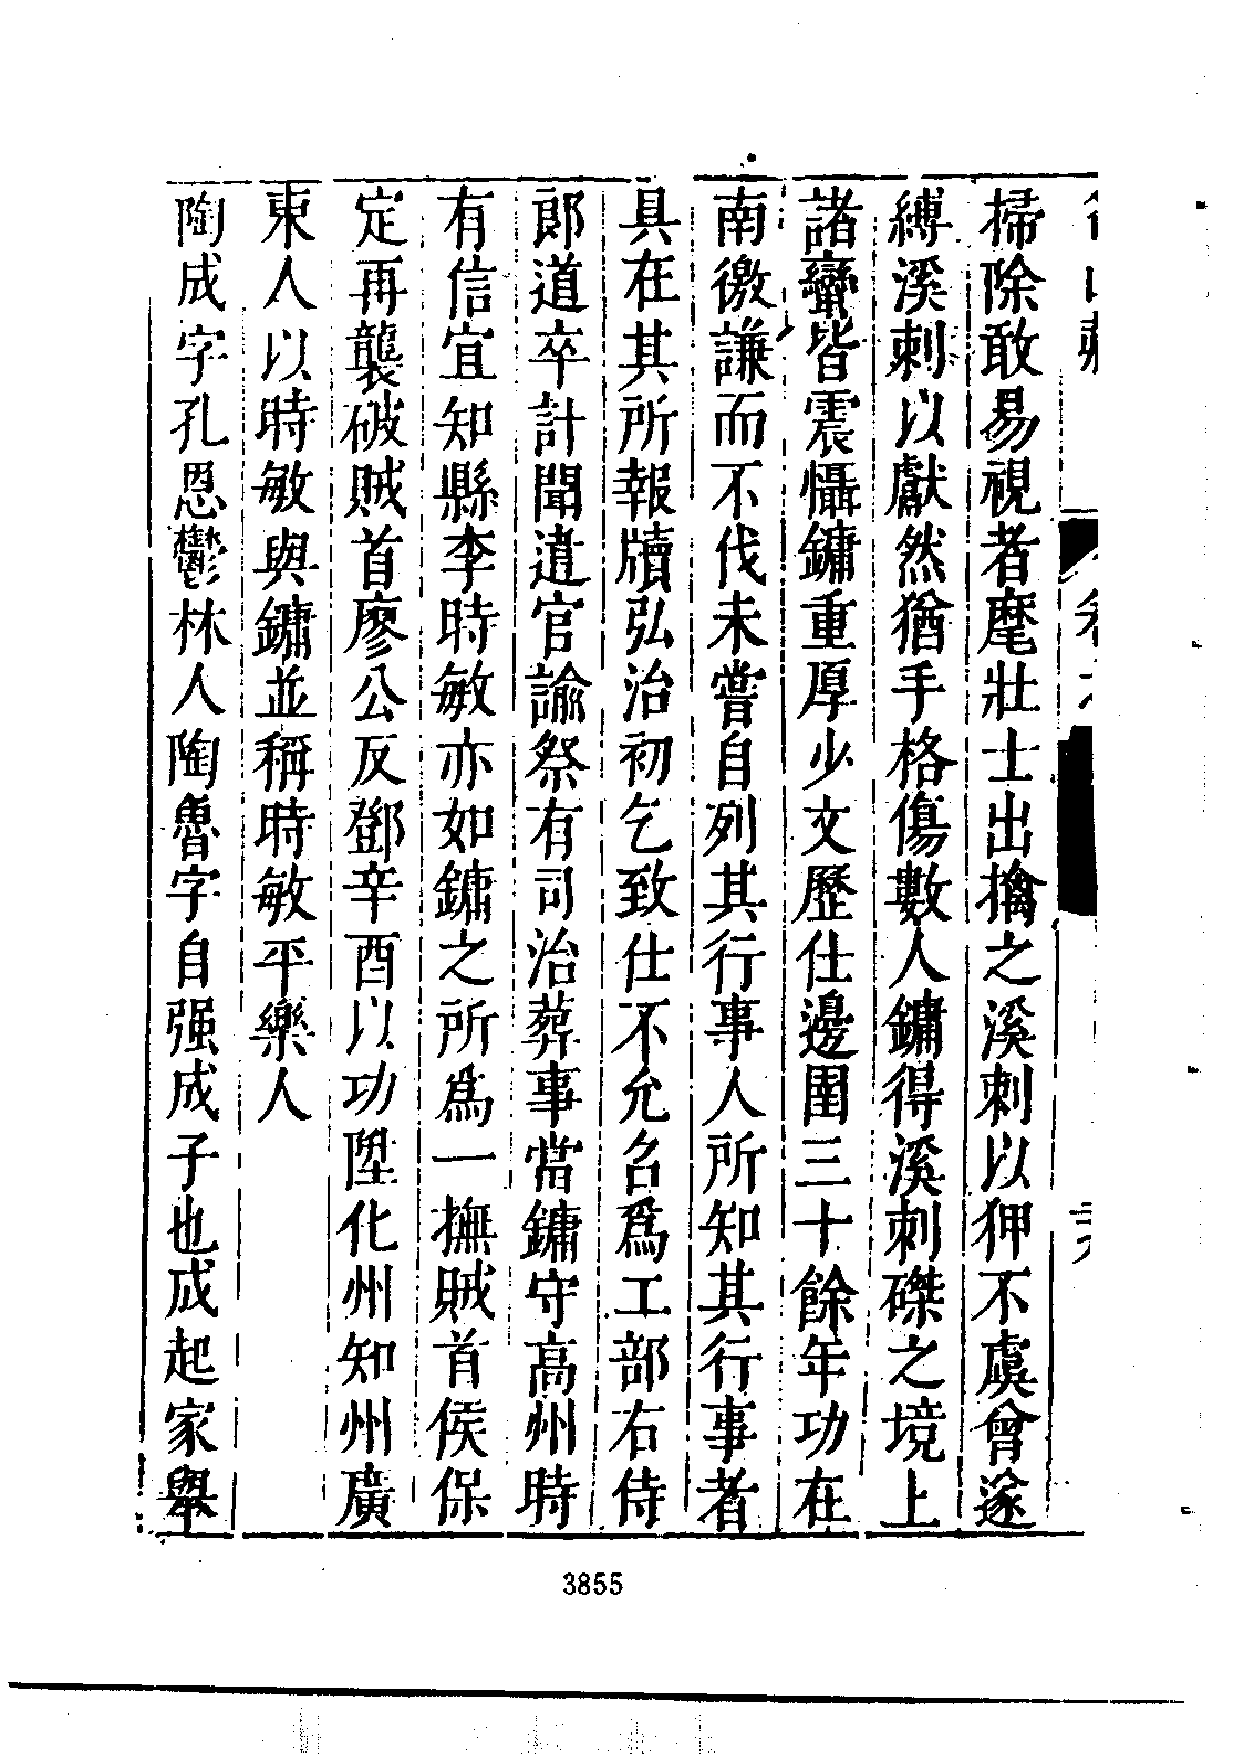 掃除敢易視者麾壯士出擒之溪剌以狎不虞曾遂
縛溪剌以獻然猶手格傷數人鏞得溪剌磔之境上
諸蠻皆震懾鏞重厚少文歷仕邊圉三十餘年功在
南徼謙而不伐未嘗自列其行事人所知其行事者
具在其所報牘弘治初乞致仕不允召爲工部右侍
郎道卒計聞遣官諭祭有司治葬事當鏞守高州時
有信宜知縣李時敏亦如鏞之所爲一撫賊首侯保
定再襲破賊首廖公反鄧辛酉以功陞化州知州廣
東人以時敏與鏞並稱時敏平樂人
陶成字孔恩鬱林人陶魯字自强成子也成起家舉
3855